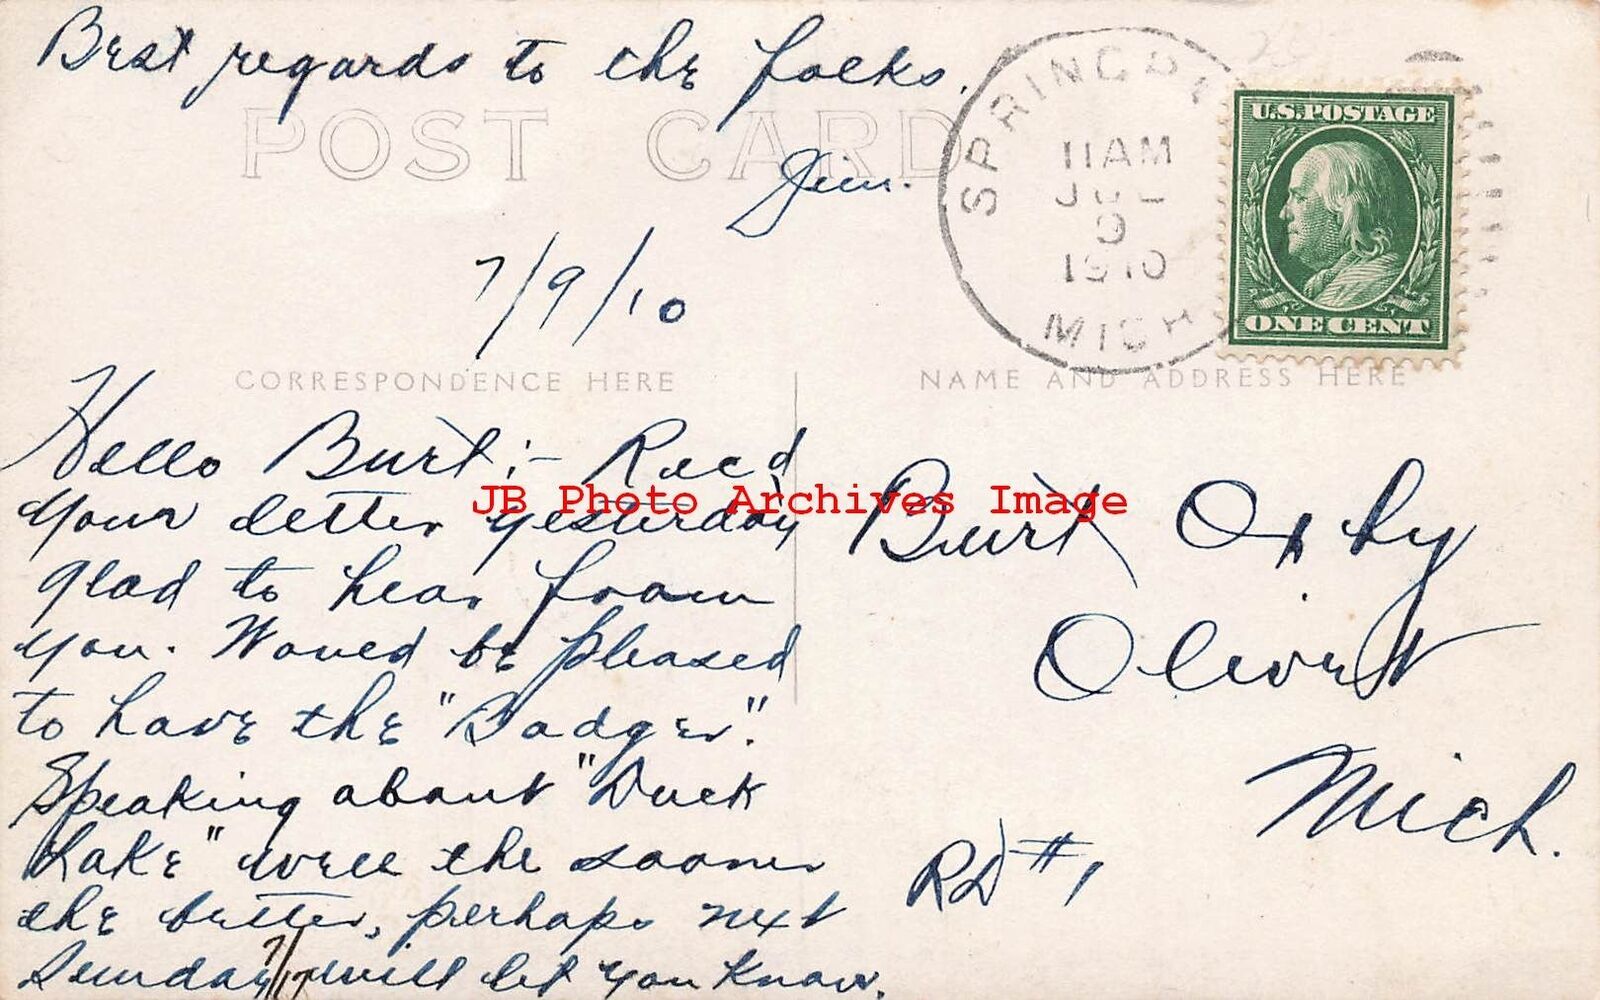 Best regards to the folks.
Jim.
POST CARD
SPRINGPO
11AM
JUL
9
1910
MICH
U.S. POSTAGE
ONE CENT
7/9/10
CORRESPONDENCE HERE
NAME AND ADDRESS HERE
Hello Burt:- Rec'd
your letter yesterday
glad to hear from
you. Would be pleased
to have the "Badger".
Speaking about "Duck
Lake" well the sooner
the better, perhaps next
Sunday 7/17 will let you know.
JB Photo Archives Image
Burt Oxby
Olivet
Mich.
RD #1